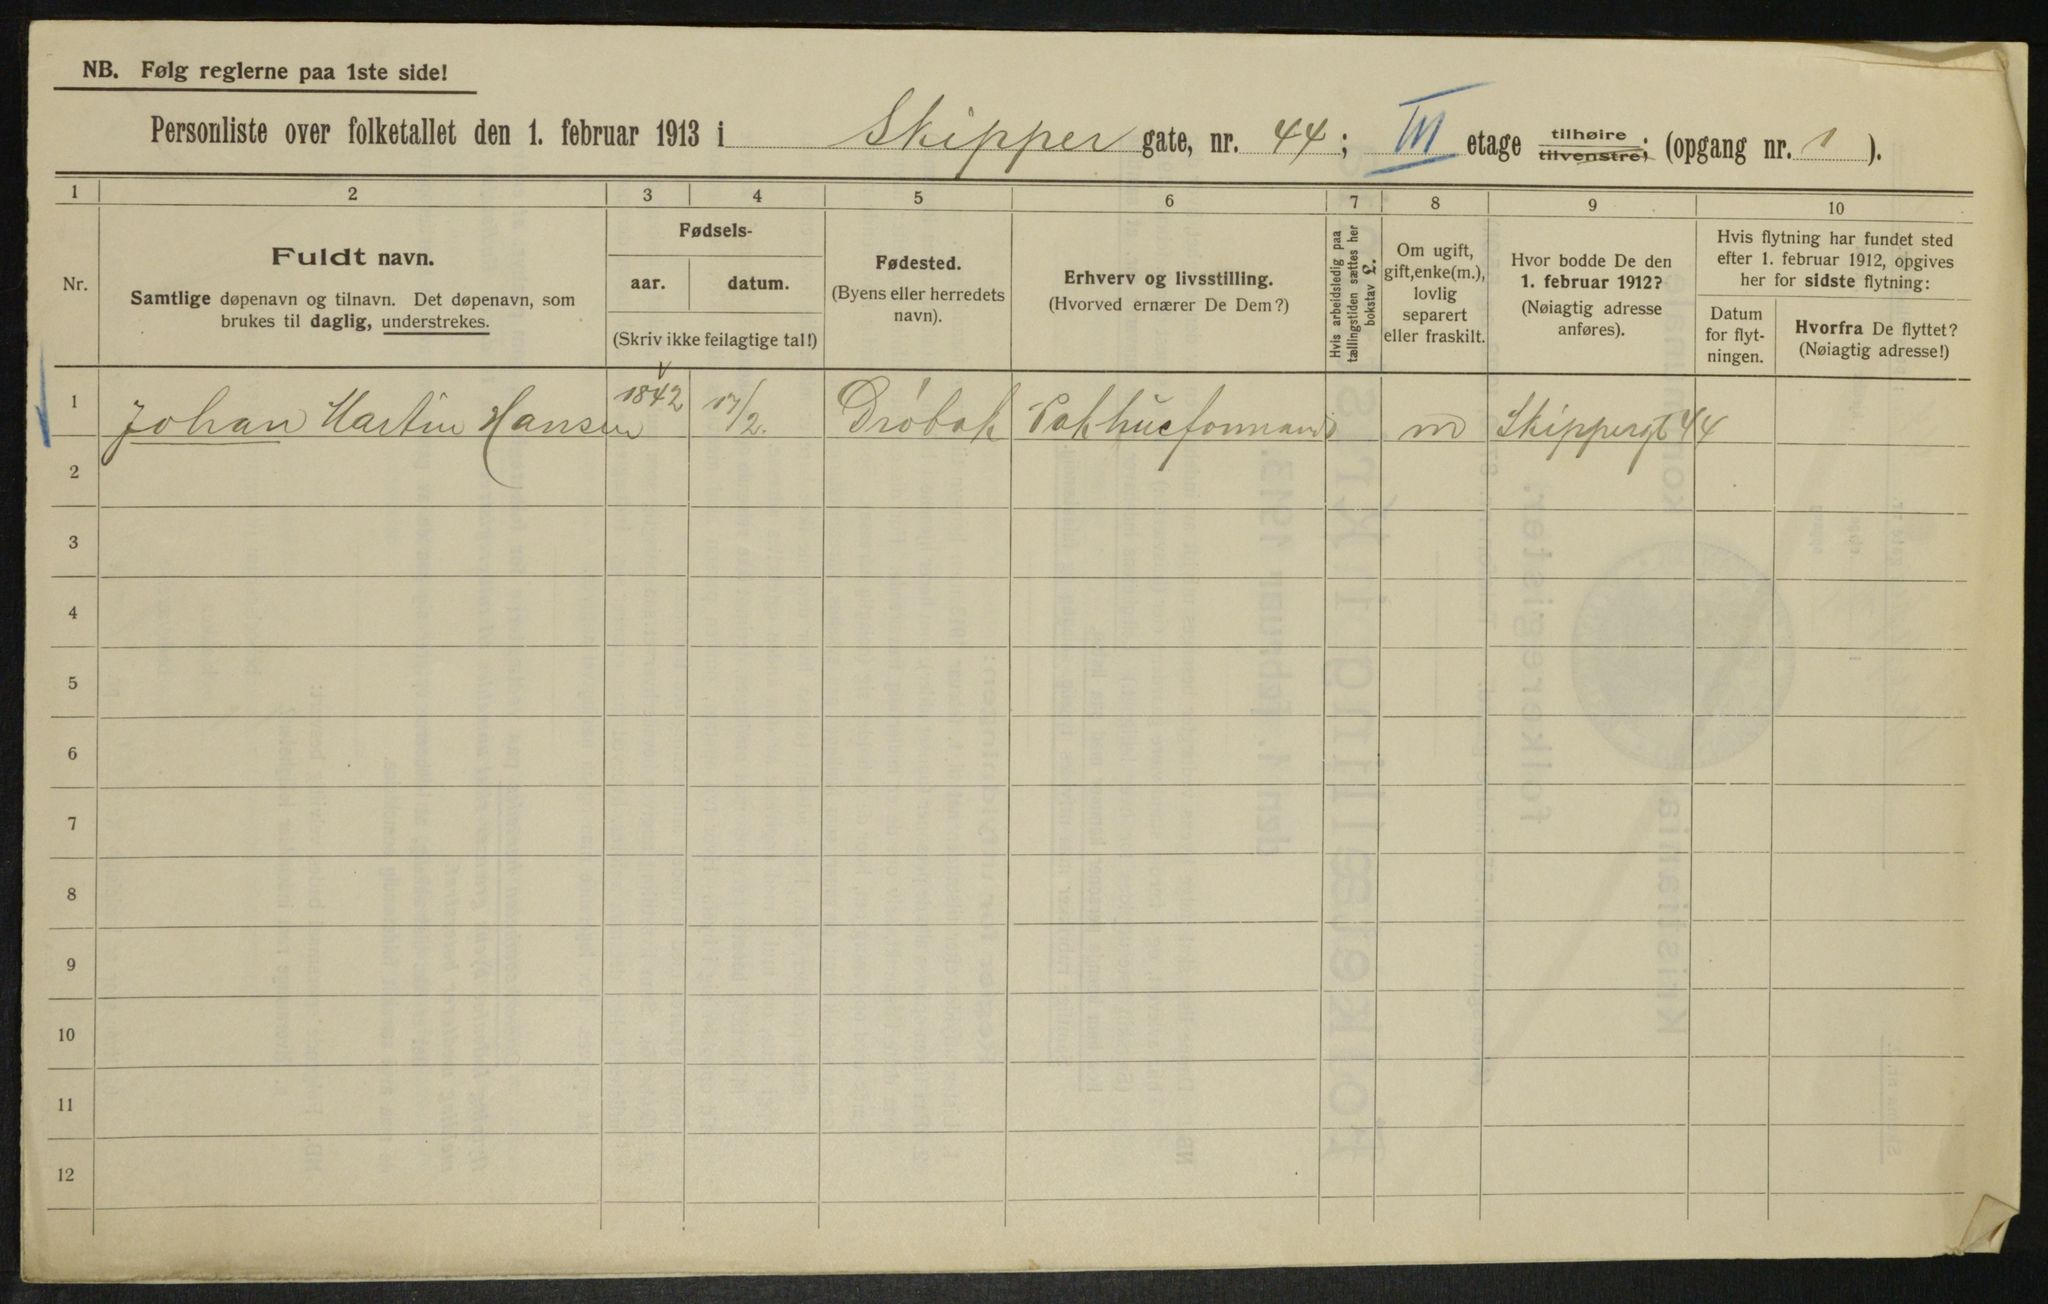 NB. Følg reglerne paa 1ste side!
Personliste over folketallet den 1. februar 1913 i Skipper gate, nr. 44; III etage tilhøire tilvenstre; (opgang nr. 1 ).
1 2 3 4 5 6 7 8 9 10
Nr.
Fuldt navn.
Samtlige døpenavn og tilnavn. Det døpenavn, som
brukes til daglig, understrekes.
Fødsels-
aar. datum.
(Skriv ikke feilagtige tal!)
Fødested.
(Byens eller herredets
navn).
Erhverv og livsstilling.
(Hvorved ernærer De Dem?)
Hvis arbeidsledig paa
tællingstiden sættes her
bokstav £.
Om ugift,
gift, enke(m.),
lovlig
separert
eller fraskilt.
Hvor bodde De den
1. februar 1912?
(Nøiagtig adresse
anføres).
Hvis flytning har fundet sted
efter 1. februar 1912, opgives
her for sidste flytning:
Datum
for flyt-
ningen.
Hvorfra De flyttet?
(Nøiagtig adresse!)
1 Johan Martin Hansen 1842 17/2. Drøbak Pakhusformand m Skippergt 44
2
3
4
5
6
7
8
9
10
11
12